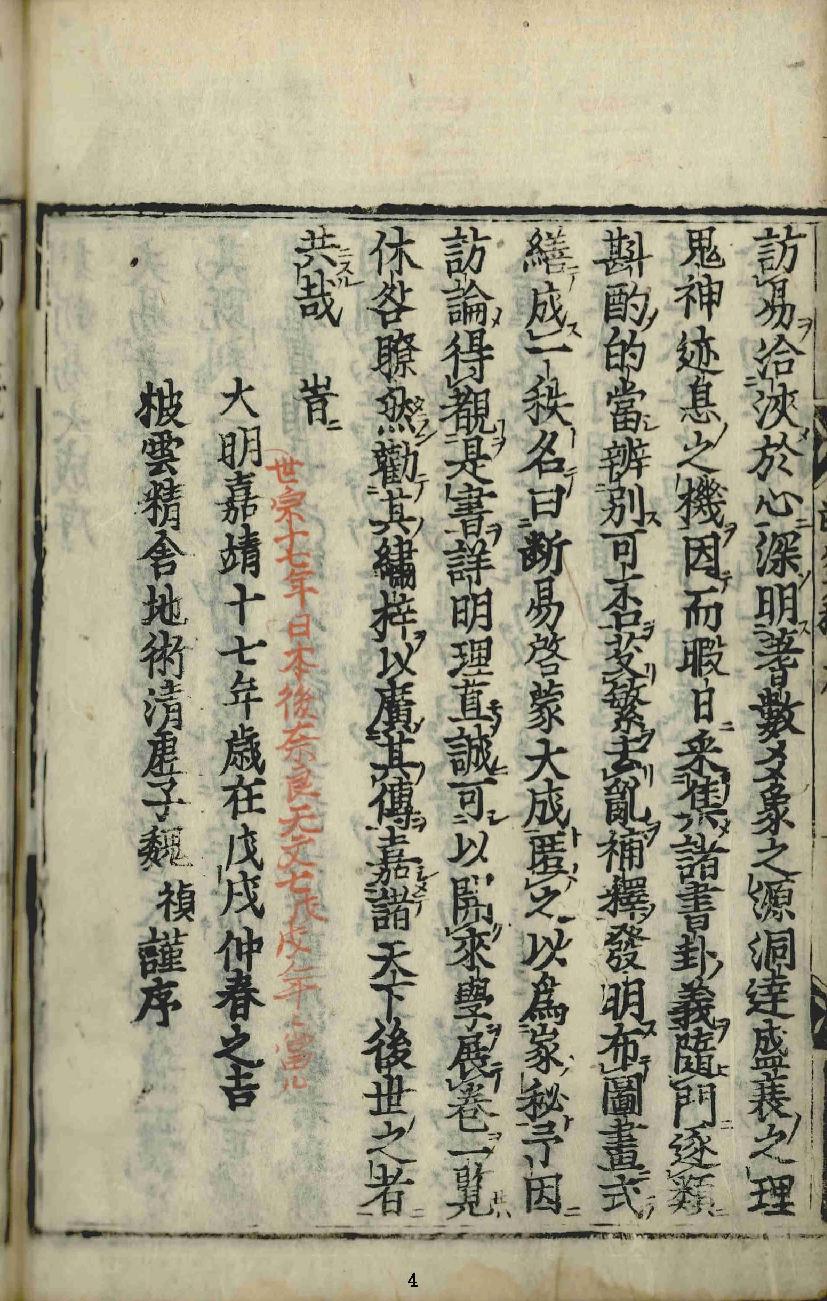 訪易洽浹於心深明蓍數爻象之源洞達盛衰之理
鬼神迹息之機因而暇日采集諸書卦義隨門逐類
斟酌的當辨別可否芟繁去亂補釋發明布圖畫式
繕成一秩名曰斷易啓蒙大成匿之以爲家秘予因
訪論得覩是書詳明理直誠可以開來學展卷一覧
休咎瞭然勸其繡梓以廣其傳嘉諸天下後世之者
共哉
旹
世宗十七年日本後奈良天文七戊戌年ニ當ル
大明嘉靖十七年歳在戊戌仲春之吉
披雲精舍地術清虛子魏禎謹序
4